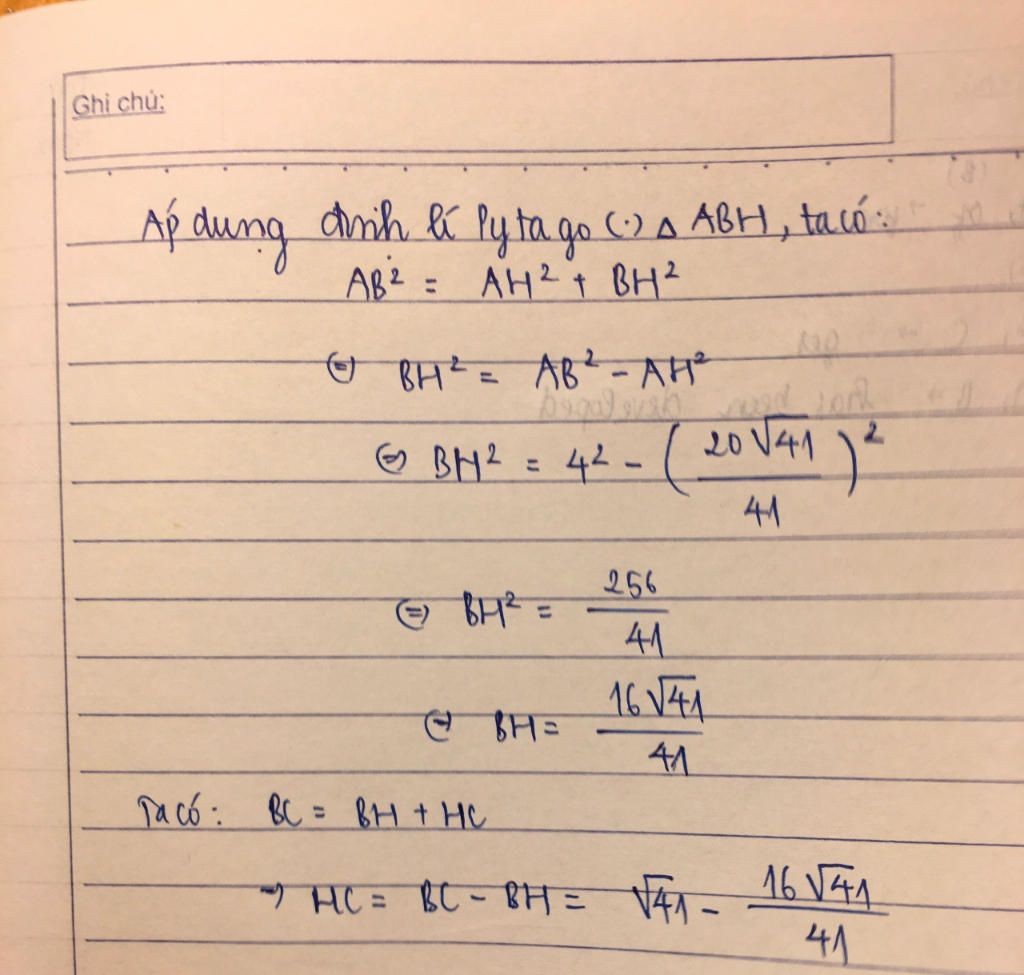 Ghi chú:
Áp dụng định lí Pytago (·) △ ABH, ta có:
AB² = AH² + BH²
⇔ BH² = AB² - AH²
⇔ BH² = 4² - (20√41/41)²
⇔ BH² = 256/41
⇔ BH = 16√41/41
Ta có: BC = BH + HC
→ HC = BC - BH = √41 - 16√41/41